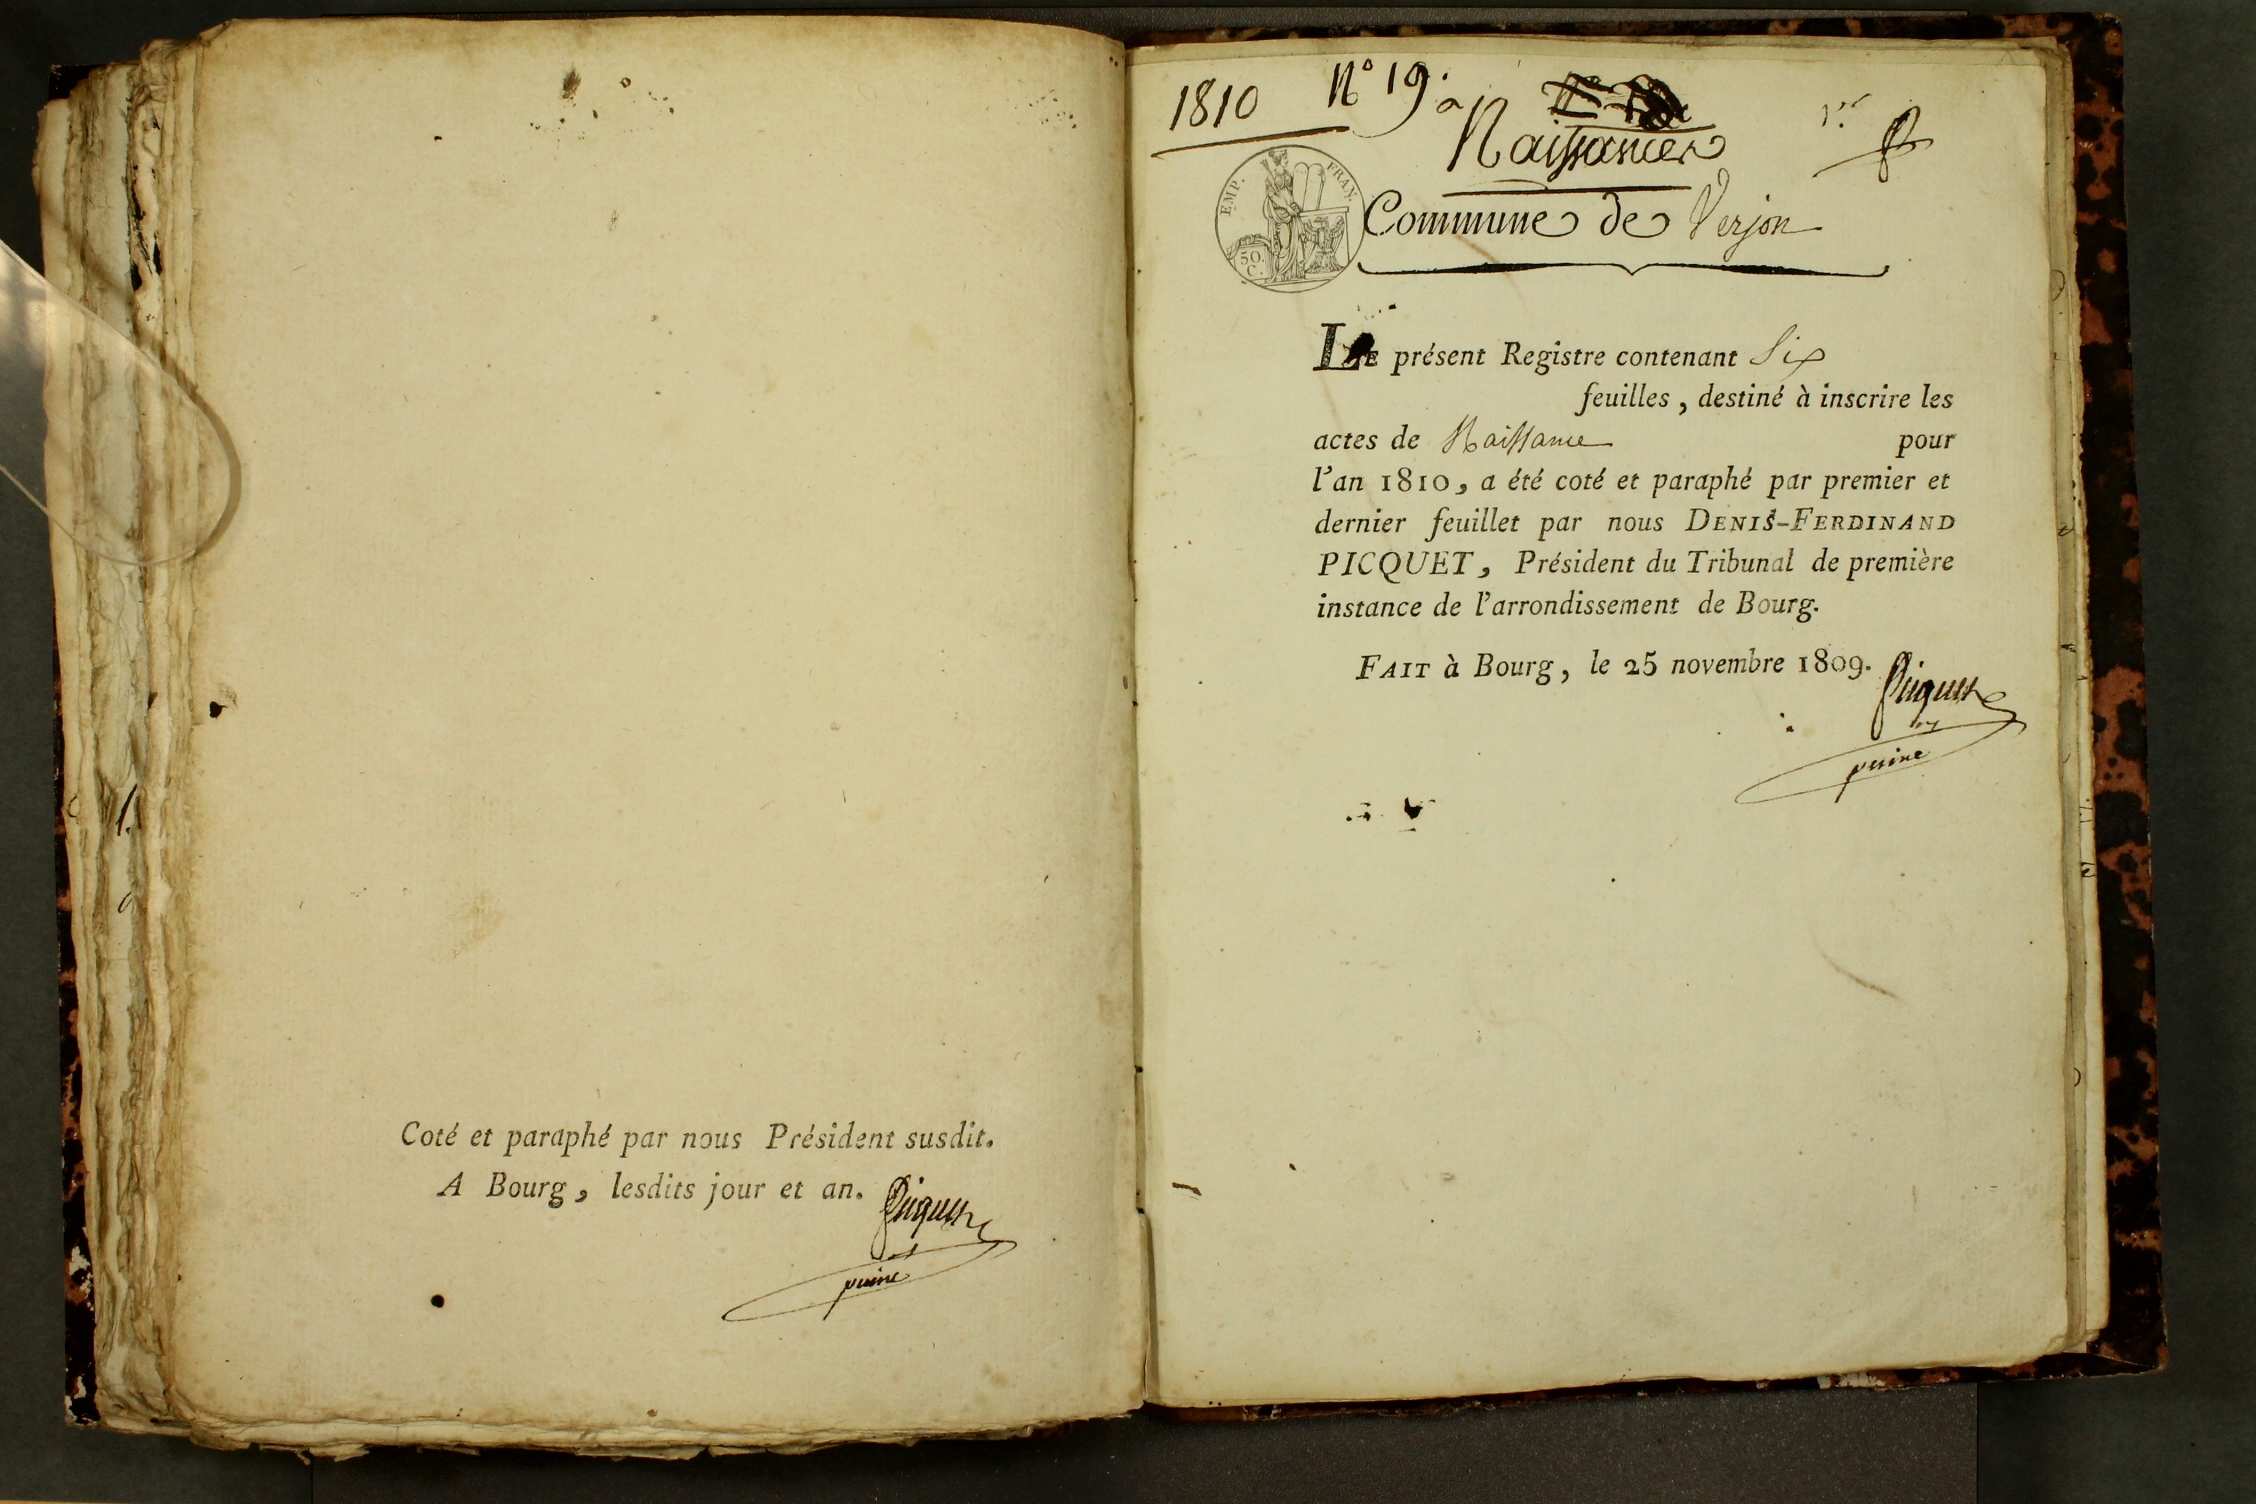 Coté et paraphé par nous Président susdit.
A Bourg, lesdits jour et an.
Picquet
1810
N° 19.
Naissances
1er
EMP. FRAN.
50.
C.
Commune de Verjon
LE présent Registre contenant Six
feuilles, destiné à inscrire les
actes de Naissance pour
l'an 1810, a été coté et paraphé par premier et
dernier feuillet par nous DENIS-FERDINAND
PICQUET, Président du Tribunal de première
instance de l'arrondissement de Bourg.
FAIT à Bourg, le 25 novembre 1809.
Picquet